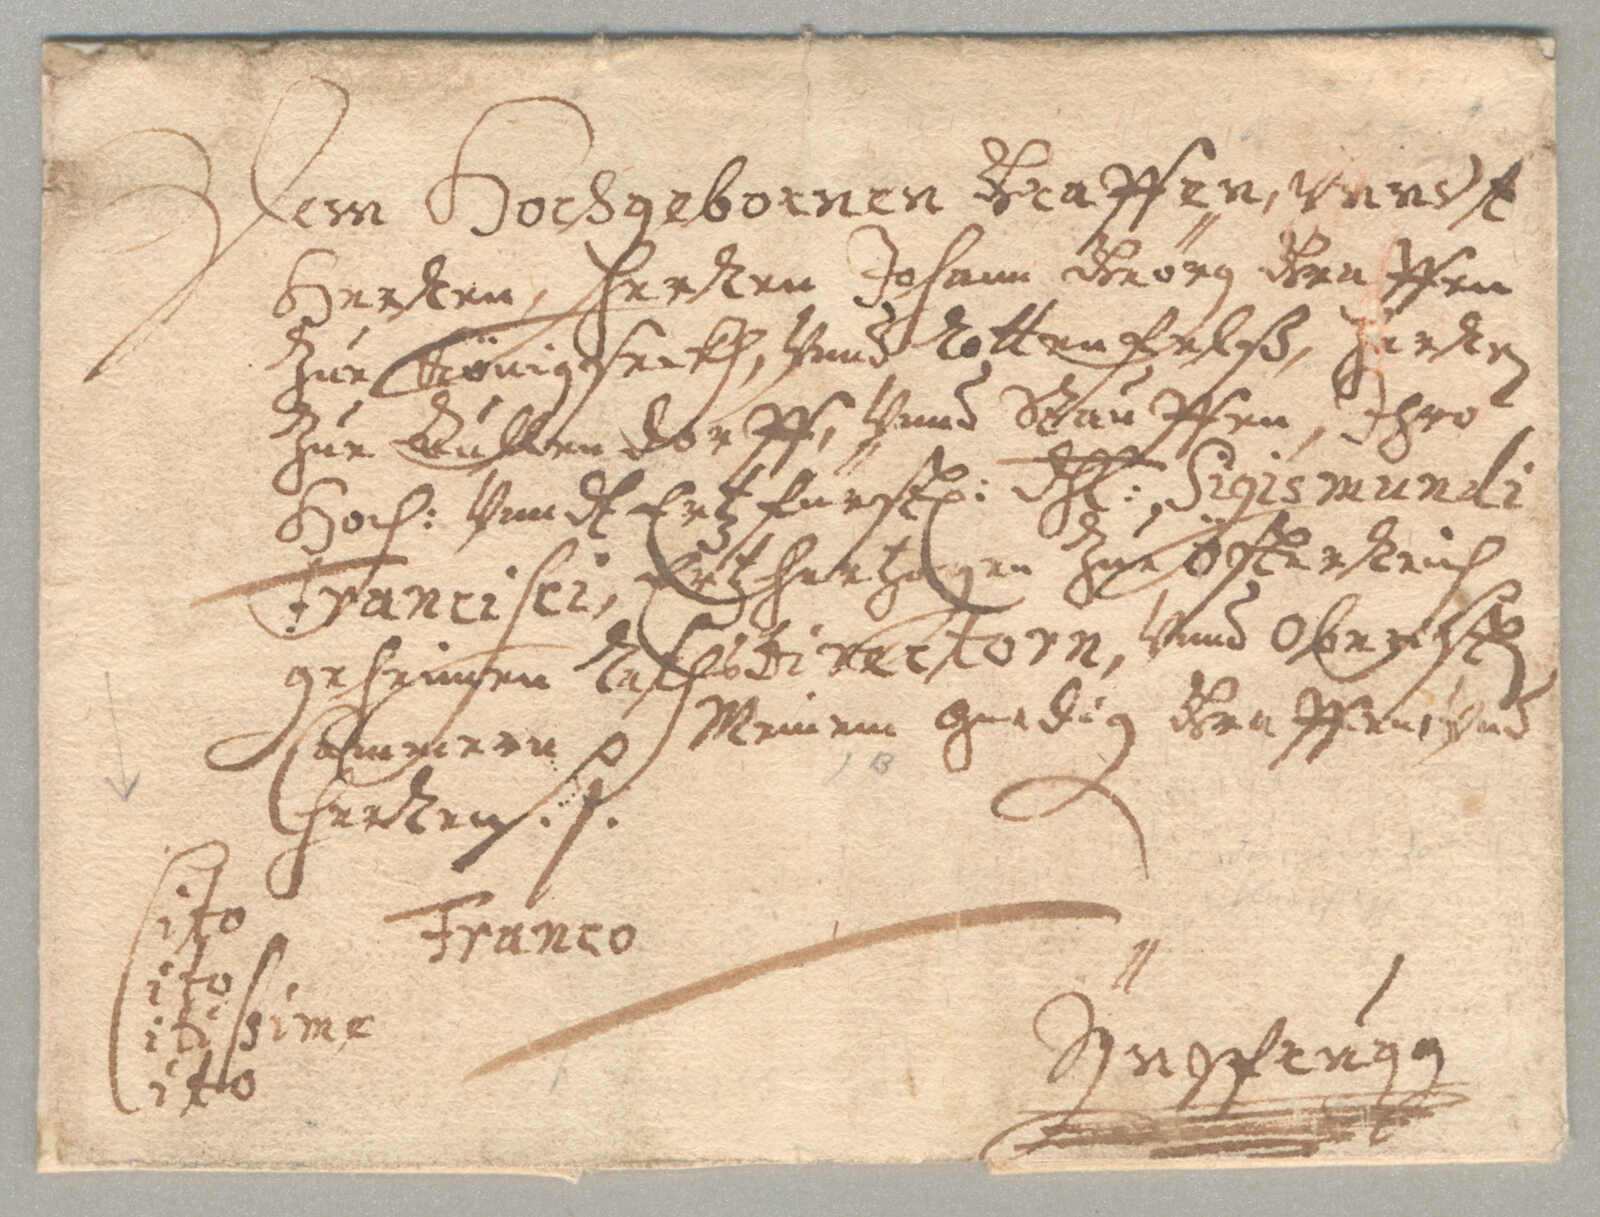 Dem Hochgebornen Graffen, vnndt
Herren, Herren Johann Georg Graffen
Zue Königsseckh, Vnnd Rottenfelß, Herren
Zue Aullendorff, Vnnd Stauffen, Ihro
Hoch: Vnndt Ertzfürstl: Dhl: Sigismundi
Francisci, Ertzhertzogen Zue Österreich
geheimen Raths Directorn, Vnnd Obersten
Camerern p Meinem gnedig Graffen, Vnd
Herren. p.
Cito
Cito
Citissime
Cito
Franco
Ynsprugg